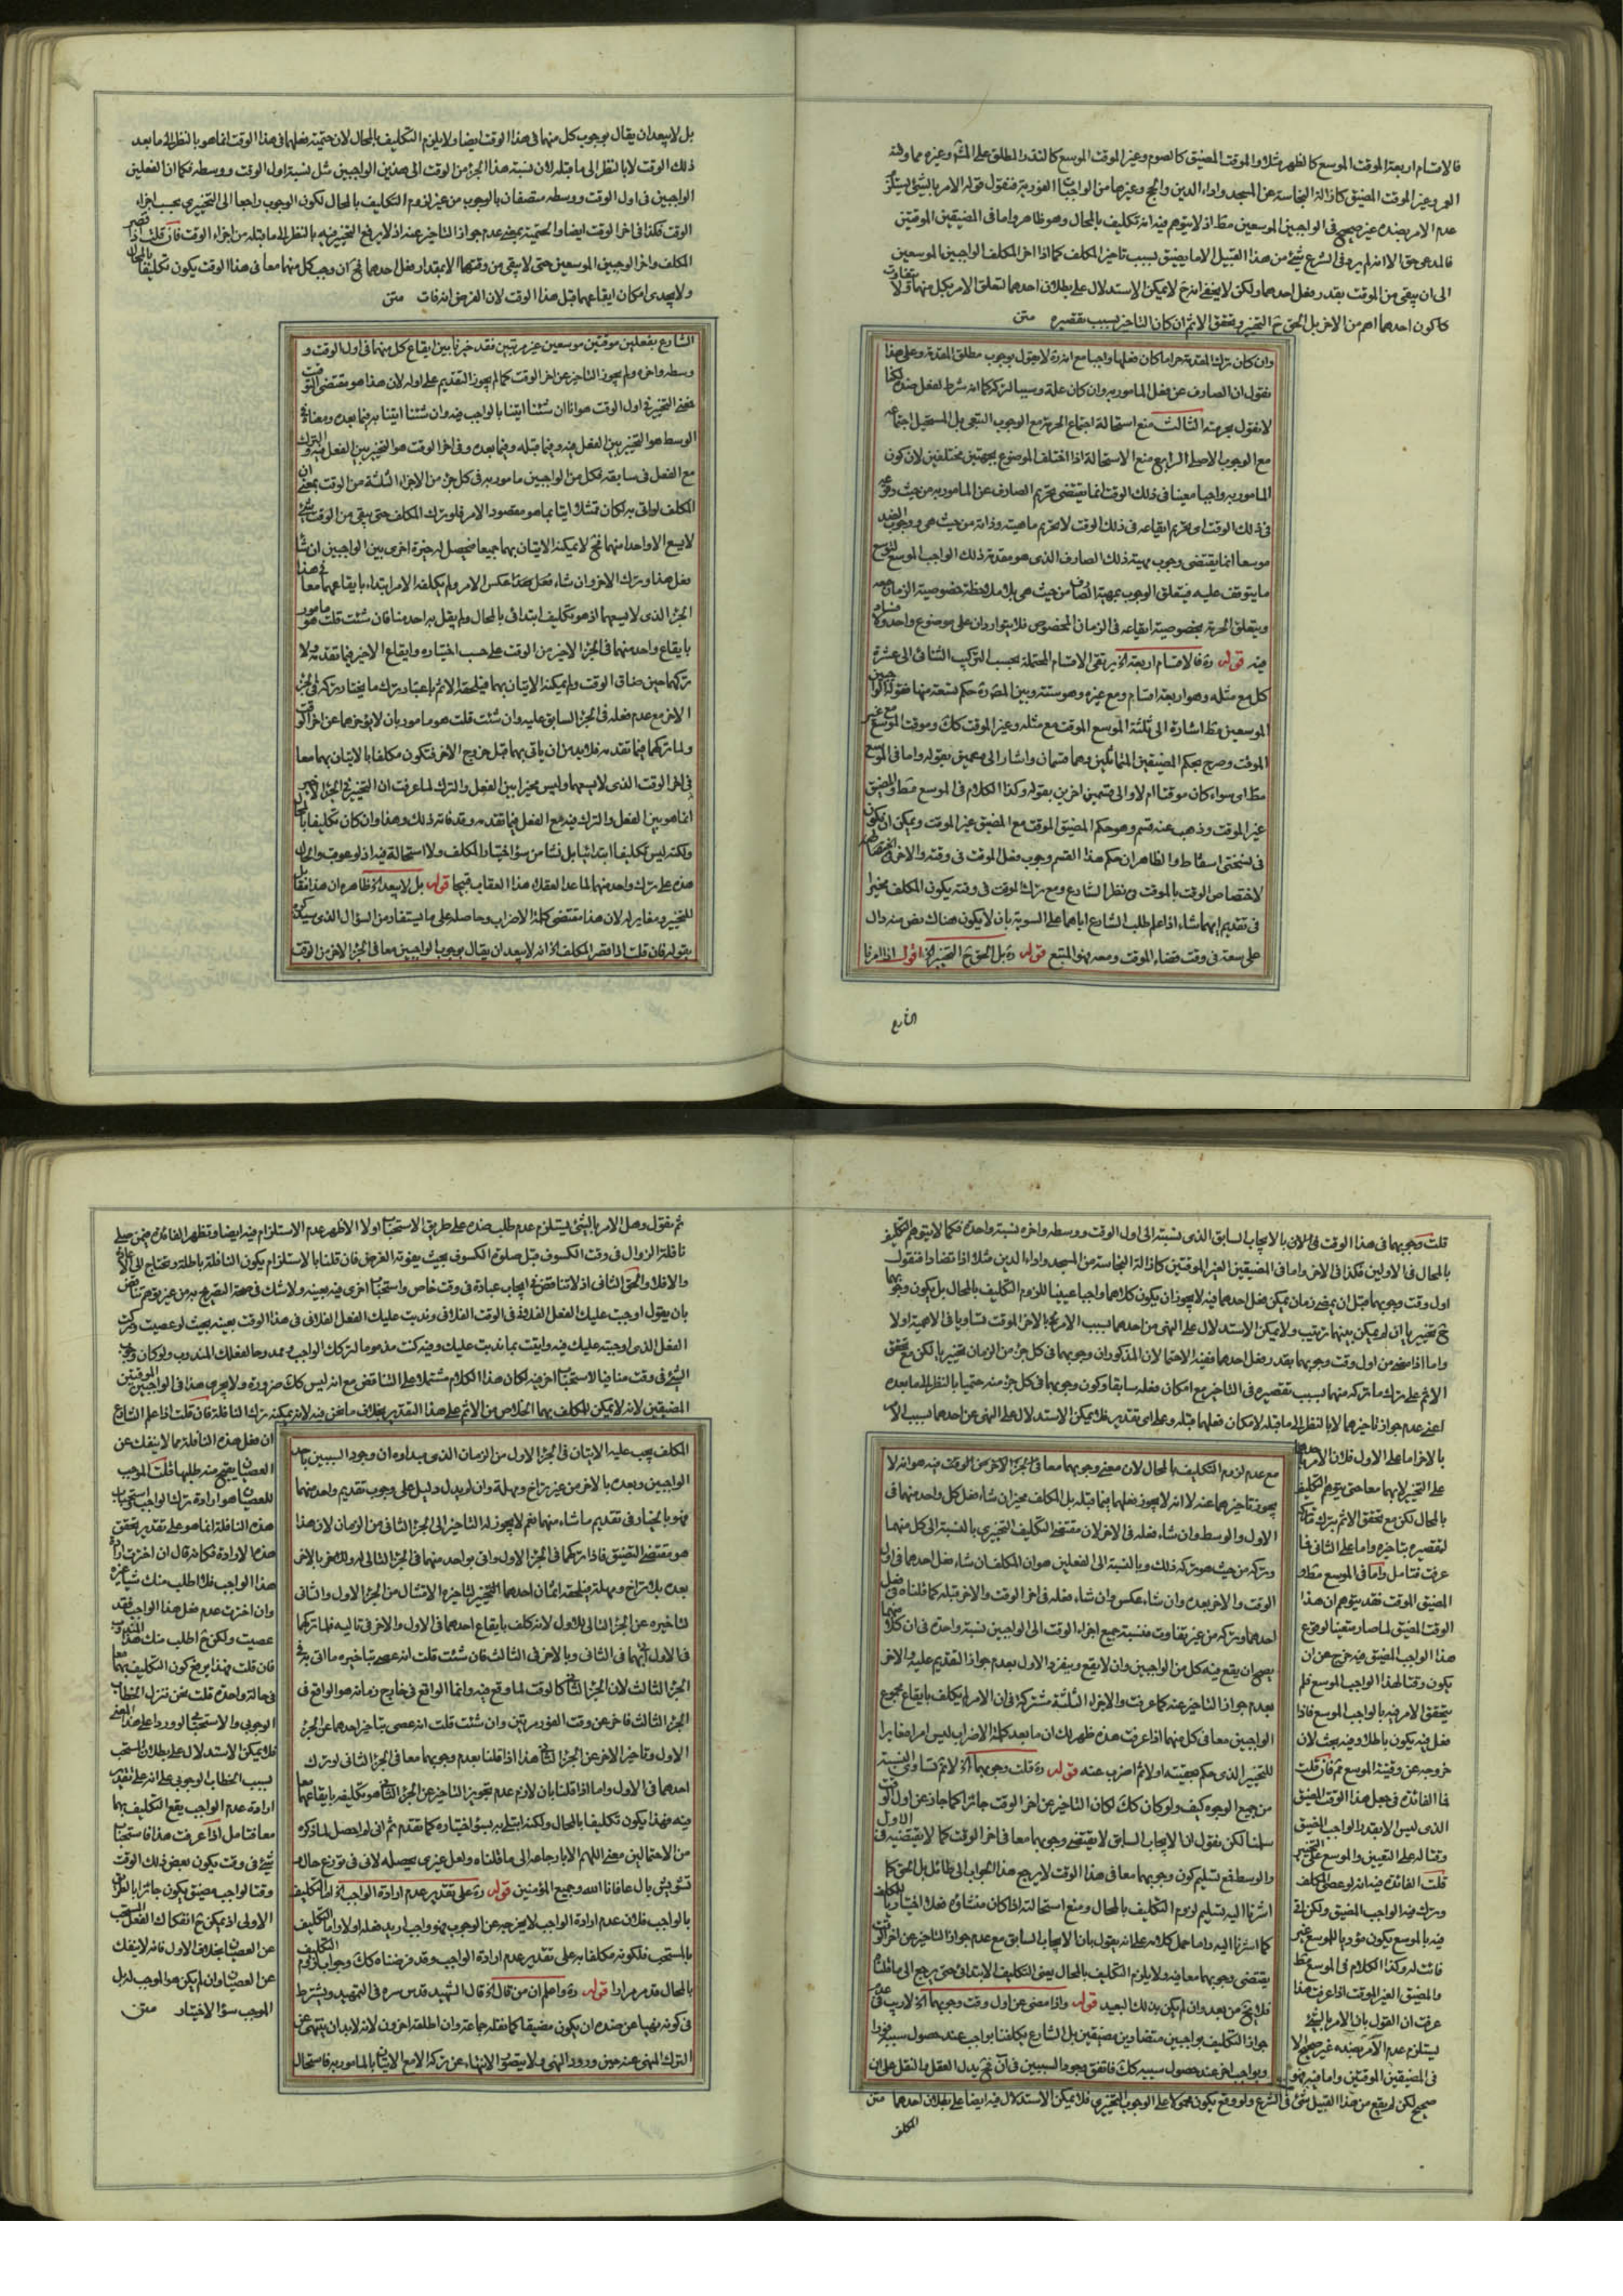 فالاقسام اربعة الموقت الموسع كالظهر مثلا والموقت المضيق كالصوم وغير الموقت الموسع كالنذر المطلق على المشهور وغيره مما وقته
العمر وغير الموقت المضيق كازالة النجاسة عن المسجد واداء الدين والحج وغيرها من الواجبات الفورية فنقول قوله الامر بالشئ يستلزم
عدم الامر بضده غير صحيح فى الواجبين الموسعين مط اذ لا يتوهم فيه انه تكليف بالمحال وهو ظاهر واما فى المضيقين الموقتين
فالمدعى حق الا انه لم يرد فى الشرع شئ من هذا القبيل الا ما يضيق بسبب تاخير المكلف كما اذا اخر المكلف الواجبين الموسعين
الى ان يبقى من الوقت بقدر فعل احدهما ولكن لا يخفى انه ح لا يمكن الاستدلال على بطلان احدهما لتعلق الامر بكل منهما ولا يتفاوت
كا كون احدهما اهم من الاخر بل الحق ح التخيير وتحقق الاثم ان كان التاخير بسبب تقصيره متن
وان كان ترك المقدمة حراما كان فعلها واجبا مع انه رة لا يقول بوجوب مطلق المقدمة وعلى هذا
نقول ان الصارف عن فعل المامور به وان كان علة وسببا لتركه كما انه شرط لفعل ضده لكنا
لا نقول بحرمته الثالث منع استحالة اجتماع الحرمة مع الوجوب التبعى بل المستحيل اجتماعه
مع الوجوب الاصلى الرابع منع الاستحالة اذا اختلف الموضوع بجهتين مختلفتين لان كون
المامور به واجبا معينا فى ذلك الوقت انما يقتضى تحريم الصارف عن المامور به من حيث وقوعه
فى ذلك الوقت اى تحريم ايقاعه فى ذلك الوقت لا تحريم ماهيته وذاته من حيث هى ووجوب الضد
موسعا انما يقتضى وجوب مهية ذلك الصارف الذى هو مقدمة ذلك الواجب الموسع
ما يتوقف عليه فيتعلق الوجوب بمهية الصارف من حيث هى بلا ملاحظة خصوصية الزمان معه
ويتعلق الحرمة بخصوصية ايقاعه فى الزمان المخصوص فلا يتواردان على موضوع واحد ولا فساد
فيه قوله رة فالاقسام اربعة الخ يرتقى الاقسام المحتملة بحسب التركيب الثنائى الى عشرة
كل مع مثله وهو اربعة اقسام ومع غيره وهو ستة وبين المص رة حكم تسعة منها فقوله الواجبين
الموسعين مط اشارة الى ثلثة الموسع الموقت مع مثله وغير الموقت كك وموقت الموسع مع غير
الموقت وصرح بحكم المضيقين المتماثلين وهما قسمان واشار الى قسمين بقوله واما فى الموسع
مط اى سواء كان موقتا ام لا والى قسمين اخرين بقوله وكذا الكلام فى الموسع مط والمضيق
غير الموقت وذهب عنه قسم وهو حكم المضيق الموقت مع المضيق غير الموقت ويمكن ان يكون
فى نسختى اسقاط والظاهر ان حكم هذا القسم وجوب فعل الموقت فى وقته والاخر فى
لاختصاص الوقت بالموقت فى نظر الشارع ومع ترك الموقت فى وقته يكون المكلف مخيرا
فى تقديم ايهما شاء اذا علم طلب الشارع اياهما على السوية بان لا يكون هناك نص منه دال
على سعة فى وقت قضاء الموقت ومعه فهو المتبع قوله رة بل الحق ح التخيير الخ اقول اذا امرنا
الشارع
بل لا يبعد ان يقال بوجوب كل منهما فى هذا الوقت ايضا ولا يلزم التكليف بالمحال لان حتمية فعلهما فى هذا الوقت انما هو بالنظر الى ما بعد
ذلك الوقت لا بالنظر الى ما قبله لان نسبة هذا الجزء من الوقت الى هذين الواجبين مثل نسبة اول الوقت ووسطه فكما ان الفعلين
الواجبين فى اول الوقت ووسطه متصفان بالوجوب من غير لزوم التكليف بالمحال لكون الوجوب راجعا الى التخييرى بحسب اجزاء
الوقت فكذا فى اخر الوقت ايضا والحتمية بمعنى عدم جواز التاخير عنه اذ لا يرفع التخيير فيه بالنظر الى ما قبله من اجزاء الوقت فان قلت اذا قصر
المكلف واخر الوجبين الموسعين حتى لا يبقى من وقتهما الا بمقدار فعل احدهما فح ان وجب كل منهما معا فى هذا الوقت يكون تكليفا بالمحال
ولا يجدى امكان ايقاعهما قبل هذا الوقت لان الفرض انه فات متن
الشارع بفعلين موقتين موسعين غير مرتبين فقد خيرنا بين ايقاع كل منهما فى اول الوقت و
وسطه واخره ولم يجوز التاخير عن اخر الوقت كما لم يجوز التقديم على اوله لان هذا هو مقتضى التوقيت
فمعنى التخيير فى اول الوقت هو انا ان شئنا اتينا بالواجب فيه وان شئنا اتينا به فيما بعده ومعناه فى
الوسط هو التخيير بين الفعل فيه وفيما قبله وفيما بعده وفى اخر الوقت هو التخيير بين الفعل فيه والترك
مع الفعل فى سابقه فكل من الواجبين مامور به فى كل جزء من الاجزاء الثلثة من الوقت بمعنى ان
المكلف لو اتى به لكان تمثلا اتيا بما هو مقصود الامر فلو ترك المكلف حتى بقى من الوقت شئ
لا يسع الا واحدا منهما فح لا يمكنه الاتيان بهما جميعا فحصل له خيرة اخرى بين الواجبين ان شاء
فعل هذا وترك الاخر وان شاء فعل بعكس الامر ولم يكلفه الامر ابتداء بايقاعهما معا فى هذا
الجزء الذى لا يسعهما اذ هو تكليف ابتدائى بالمحال ولم يقل به احد منا فان شئت قلت هو مامور
بايقاع واحد منهما فى الجزء الاخير من الوقت على حسب اختياره وايقاع الاخير فيما تقدمه ولا
تركهما حين ضاق الوقت ولم يمكنه الاتيان بهما فيلحقه الاثم باعتبار ترك ما يختار تركه فى الجزء
الاخر مع عدم فعله فى الجزء السابق عليه وان شئت قلت هو مامور بان لا يؤخرهما عن اخر الوقت
ولما تركهما فيما تقدمه فلا بد من ان ياتى بهما قبل خروج الاخر فتكون مكلفا بالاتيان بهما معا
فى اخر الوقت الذى لا يسعهما وليس مخيرا بين الفعل والترك لما عرفت ان التخيير فى الجزء الاخير
انما هو بين الفعل والترك فيه مع الفعل فيما تقدمه وقد فاته ذلك وهذا وان كان تكليفا بالمحال
ولكنه ليس تكليفا ابتدائيا بل نشا من سوء اختيار المكلف ولا استحالة فيه اذ لو عوقب والحال
هذه على ترك واحد منهما لما عد العقلاء هذا العقاب قبيحا قوله بل لا يبعد الخ ظاهره ان هذا مقابل
للتخيير ومغاير له لان هذا مقتضى كلمة الاضراب وحاصله على ما يستفاد من السؤال الذى سيذكره
بقوله فان قلت اذا قصر المكلف الخ انه لا يبعد ان يقال بوجوب الواجبين معا فى الجزء الاخر من الوقت
قلت وجوبهما فى هذا الوقت فى الان بالايجاب السابق الذى نسبته الى اول الوقت ووسطه واخره نسبة واحدة فكما لا يتوهم التكليف
بالمحال فى الاولين فكذا فى الاخر واما فى المضيقين الغير الموقتين كازالة النجاسة عن المسجد واداء الدين مثلا اذا تضادا فنقول
اول وقت وجوبهما قبل ان يمضى زمان يمكن فعل احدهما فيه لا يجوز ان يكون كلاهما واجبا عينيا للزوم التكليف بالمحال بل يكون وجوبهما
ح تخييريا ان لم يكن بينهما ترتيب ولا يمكن الاستدلال على النهى من احدهما بسبب الامر بالاخر الموقت تساويا فى الاهمية اولا
واما اذا مضى من اول وقت وجوبهما بقدر فعل احدهما ففيه الاحتمالان المذكوران وجوبهما فى كل جزء من الزمان تخييريا لكن مع تحقق
الاثم على ترك ما تركه منهما بسبب تقصيره فى التاخير مع امكان فعله سابقا وكون وجوبهما فى كل جزء منه حتميا بالنظر الى ما بعده
اعنى عدم جواز تاخيرهما لا بالنظر الى ما قبله لامكان فعلهما قبله وعلى اى تقدير فلا يمكن الاستدلال على النهى عن احدهما بسبب الامر
بالاخر اما على الاول فلان الامر بهما
على التخيير لا بهما معا حتى يتوهم التكليف
بالمحال لكن مع تحقق الاثم بترك ما تركه
لتقصيره بتاخيره واما على الثانى فلما
عرفت فتامل واما فى الموسع مط و
المضيق الموقت فقد يتوهم ان هذا
الوقت المضيق لما صار متعينا لوقوع
هذا الواجب المضيق فيه خرج عن ان
يكون وقتا لهذا الواجب الموسع فلم
يتحقق الامر فيه بالواجب الموسع فاذا
فعل فيه يكون باطلا وفيه بحث لان
خروجه عن وقتية الموسع ثم فان قلت
فما الفائدة فى جعل هذا الوقت المضيق
الذى ليس الا بقدر الواجب المضيق
وقتا له على التعيين والموسع على التخيير
قلت الفائدة فيه انه لو عصى المكلف
وترك فيه الواجب المضيق ولكن اتى
فيه بالموسع يكون مؤديا للموسع غير
فائت له وكذا الكلام فى الموسع مط
والمضيق الغير الموقت اذا عرفت هذا
عرفت ان القول بان الامر بالشئ
يستلزم عدم الامر بضده غير صحيح الا
فى المضيقين الموقتين واما فيه فهو
صحيح لكن لم يقع من هذا القبيل شئ فى الشرع ولو وقع يكون محمولا على الوجوب التخييرى فلا يمكن الاستدلال فيه ايضا على بطلان احدهما متن
مع عدم لزوم التكليف بالمحال لان معنى وجوبهما معا فى الجزء الاخر من الوقت فيه هو انه لا
يجوز تاخيرهما عنه لا انه لا يجوز فعلهما فيما قبله بل المكلف مخير ان شاء فعل كل واحد منهما فى
الاول والوسط وان شاء فعله فى الاخر لان مقتضى التكليف التخييرى بالنسبة الى كل منهما
وتركه من حيث هو تركه ذلك وبالنسبة الى الفعلين هو ان المكلف ان شاء فعل احدهما فى اول
الوقت والاخر بعده وان شاء عكس وان شاء فعله فى اخر الوقت والاخر قبله كما قلناه فى فعل
احدهما وتركه من غير تفاوت فنسبة جميع اجزاء الوقت الى الواجبين نسبة واحدة فى ان كلا منهما
يصح ان يقع فيه كل من الواجبين وان لا يقع ويفرد الاول بعدم جواز التقديم عليه والاخر
بعدم جواز التاخير عنه كما عرفت والاجزاء الثلثة مشتركة فى ان الامر لم يكلف بايقاع مجموع
الواجبين معا فى كل منهما اذا عرفت هذه ظهر لك ان ما بعد كلمة الاضراب ليس امرا مغايرا
للتخيير الذى حكم بحقيته اولا ثم اضرب عنه قوله رة قلت وجوبهما الخ لا ثم تساوى النسبة
من جميع الوجوه كيف ولو كان كك لكان التاخير عن اخر الوقت جائزا كما جاز عن اول الوقت
سلمنا لكن نقول ان الايجاب السابق لا يقتضى وجوبهما معا فى اخر الوقت كما لا يقتضيه فى الاول
والوسط فمع تسليم كون وجوبهما معا فى هذا الوقت لا يرجع هذا الجواب الى طائل بل الحق كما
اشرنا اليه تسليم لزوم التكليف بالمحال ومنع استحالته اذا كان منشاؤه فعلا اختياريا للمكلف
كما اشرنا اليه واما حمل كلامه على انه يقول بان الايجاب السابق مع عدم جواز التاخير عن اخر الوقت
يقتضى وجوبهما معا فيه ولا يلزم التكليف بالمحال يعنى التكليف الابتدائى حتى يرجع الى ما قلناه
فلا يخ من بعد وان لم يكن بذلك البعيد قوله واذا مضى عن اول وقت وجوبهما الخ لا ريب فى عدم
جواز التكليف بواجبين متضادين مضيقين بل الشارع يكلفنا بواجب عند حصول سببه فورا
وبواجب اخر عند حصول سببه كك فاتفق وجود السببين فى آن فح يدل العقل بالنقل على ان
المكلف
ثم نقول وهل الامر بالشئ يستلزم عدم طلب ضده على طريق الاستحباب اولا الاظهر عدم الاستلزام فيه ايضا وتظهر الفائدة فيمن صلى
نافلة الزوال فى وقت الكسوف قبل صلوة الكسوف بحيث يفوته الفرض فان قلنا بالاستلزام يكون النافلة باطلة وتحتاج الى الاعادة
والا فلا والحق الثانى اذ لا تناقض فى ايجاب عبادة فى وقت خاص واستحباب اخرى فيه بعينه ولا شك فى صحة التصريح به من غير توهم تناقض
بان يقول اوجبت عليك الفعل الفلانى فى الوقت الفلانى وندبت عليك الفعل الفلانى فى هذا الوقت بعينه بحيث لو عصيت وتركت
الفعل الذى اوجبته عليك فيه واتيت بما ندبت عليك وفيه كنت مذموما لتركك الواجب وممدوحا لفعلك المندوب ولو كان وجوب
الشئ فى وقت منافيا لاستحباب اخر فيه لكان هذا الكلام مشتملا على التناقض مع انه ليس كك ضرورة ولا يجرى هذا فى الواجبين الموقتين
المضيقين لانه لا يمكن للمكلف بهما الخلاص من الاثم على هذا التقدير بخلاف ما نحن فيه لانه يمكنه ترك النافلة فان قلت اذا علم الشارع
ان فعل هذه النافلة مما لا ينفك عن
العصيان يقبح منه طلبها قلت الموجب
للعصيان هو ارادة ترك الواجب استحباب
هذه النافلة انما هو على تقدير تحقق
هذه الارادة فكانه قال ان اخترت ارادة
هذا الواجب فلا اطلب منك شيئا غيره
وان اخترت عدم فعل هذا الواجب فقد
عصيت ولكن ح اطلب منك هذا المندوب
فان قلت فهذا يرجع كون التكليف بهما معا
فى حالة واحدة قلت نحن ننزل الخطاب
الوجوبى والاستحبابى الوارد على هذا المعنى
فلا يمكن الاستدلال على بطلان المستحب
بسبب الخطاب الوجوبى على انه على تقدير
ارادة عدم الواجب يقع التكليف بهما
معا فتامل اذا عرفت هذا فاستحباب
شئ فى وقت يكون بعض ذلك الوقت
وقتا لواجب مضيق يكون جائزا بالطريق
الاولى اذ يمكن ح انفكاك الفعل المستحب
عن العصيان بخلاف الاول فانه لا ينفك
عن العصيان وان لم يكن هو الموجب له بل
الموجب سوء الاختيار متن
المكلف يجب عليه الاتيان فى الجزء الاول من الزمان الذى مبداوه ان وجود السببين باحد
الواجبين وبعده بالاخر من غير تراخ ومهلة وان لم يدل دليل على وجوب تقديم واحد منهما
فهو بالخيار فى تقديم ما شاء منهما نعم لا يجوز له التاخير الى الجزء الثانى من الزمان لان هذا
هو مقتضى التضيق فاذا تركهما فى الجزء الاول واتى بواحد منهما فى الجزء التالى له ولحق بالاخر
بعده بلا تراخ ومهلة فيلحقه اثمان احدهما لتاخيره الامتثال من الجزء الاول والثانى
لتاخيره عن الجزء التالى للاول لانه كلف بايقاع احدهما فى الاول والاخر فى تاليه فلما تركهما
فى الاول اتى بهما فى الثانى وبالاخر فى الثالث فان شئت قلت انه عصى بتاخيره ما اتى به فى
الجزء الثالث لان الجزء الثانى كالوقت لما وقع فيه وانما الواقع فى خارج زمانه هو الواقع فى
الجزء الثالث فاخر عن وقت الفور مرتين وان شئت قلت انه عصى بتاخير احدهما عن الجزء
الاول وتاخير الاخر عن الجزء الثانى هذا اذا قلنا بعدم وجوبهما معا فى الجزء الثانى لو ترك
احدهما فى الاول واما اذا قلنا بان لازم عدم تجويز التاخير عن الجزء الثانى هو تكليفه بايقاعهما معا
فيه فهذا يكون تكليفا بالمحال ولكنه ابتلى به بسوء اختياره كما تقدم ثم انى لم احصل لما ذكره
من الاحتمالين معنى اللهم الا بارجاعه الى ما قلناه ولعل غيرى يحصله لانى فى توزع حال و
تشويش بال عافانا الله وجميع المؤمنين قوله رة على تقدير عدم ارادة الواجب الخ اما التكليف
بالواجب فلان عدم ارادة الواجب لا يخرجه عن الوجوب فهو واجب اريد فعله اولا واما التكليف
بالمستحب فلكونه مكلفا به على تقدير عدم ارادة الواجب وقد فرضناه كك وجواب لزوم التكليف
بالمحال قد مر مرارا قوله رة واعلم ان من قال الخ قال الشهيد قدس سره فى التمهيد ويشترط
فى كونه نهيا عن ضده ان يكون مضيقا كما نقله جماعة وان اطلقه اخرون لانه لا بد ان ينتهى عن
الترك المنهى عنه حين ورود النهى ولا يتصور الانتهاء عن تركه الا مع الاتيان بالمامور به فاستحال